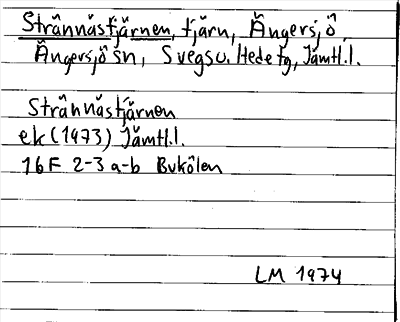 Strånnåstjärnen, tjärn, Ängersjö,
Ängersjö sn, Svegs o. Hede tg, Jämtl.l.
Strånnåstjärnen
ek (1973) Jämtl.l.
16F 2-3 a-b Bukölen
LM 1974